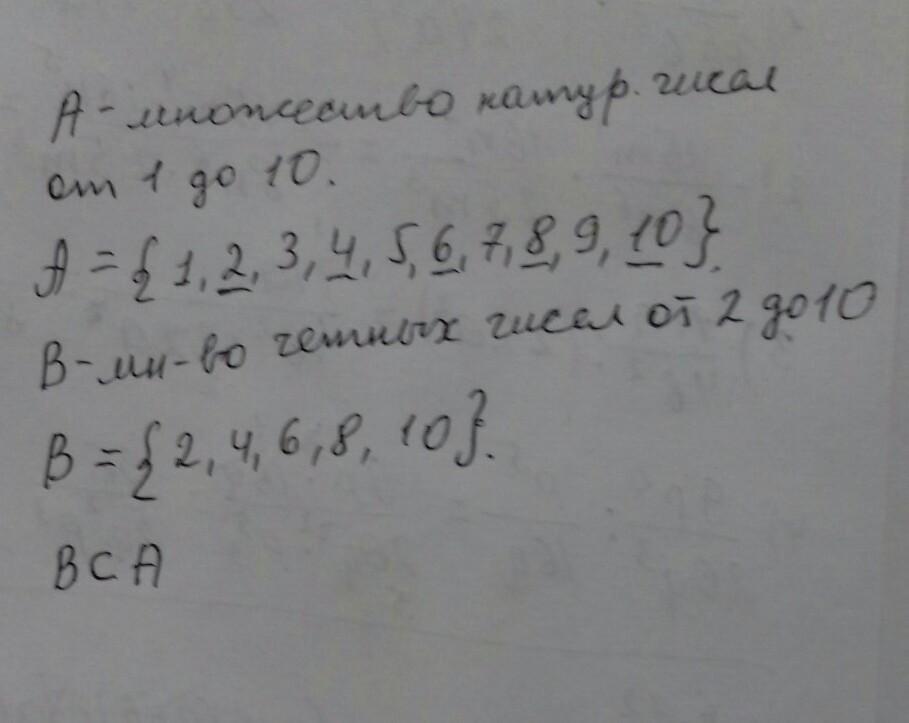 A - множество натур. чисел
от 1 до 10.
A = {1, 2, 3, 4, 5, 6, 7, 8, 9, 10}.
B - мн-во четных чисел от 2 до 10
B = {2, 4, 6, 8, 10}.
B ⊂ A